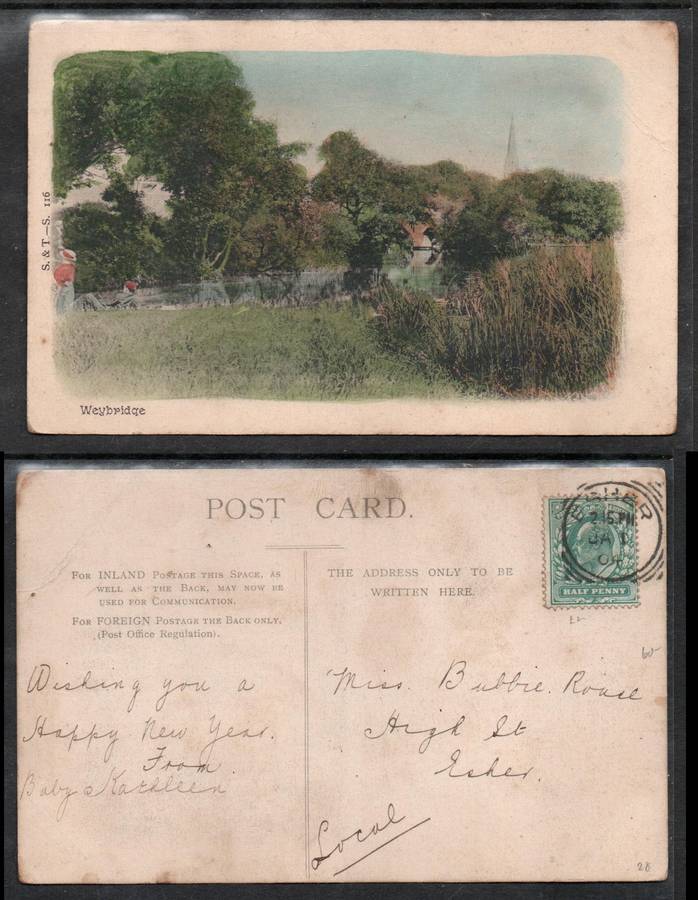 S. & T.—S. 116
Weybridge
POST CARD.
FOR INLAND POSTAGE THIS SPACE, AS
WELL AS THE BACK, MAY NOW BE
USED FOR COMMUNICATION.
FOR FOREIGN POSTAGE THE BACK ONLY.
(Post Office Regulation).
THE ADDRESS ONLY TO BE
WRITTEN HERE.
ESHER
2.15 PM
JA 1
04
HALF PENNY
Wishing you a
Happy New Year.
From
Baby Kathleen
Miss. Bubbie. Rouse
High St
Esher.
Local
28